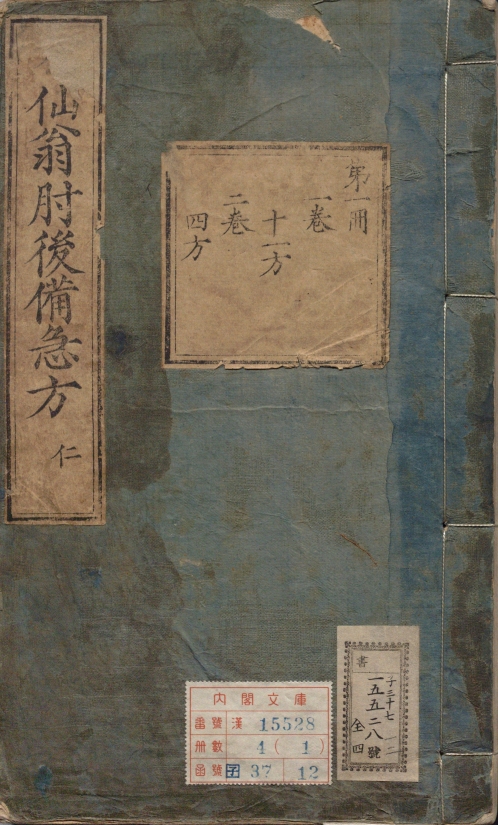 仙翁肘後備急方
仁
第一冊
一卷
十一方
二卷
四方
內閣文庫
番號 漢 15528
冊數 4 ( 1 )
函號 子 37 12
書
子三十七
一五五二八號
全四